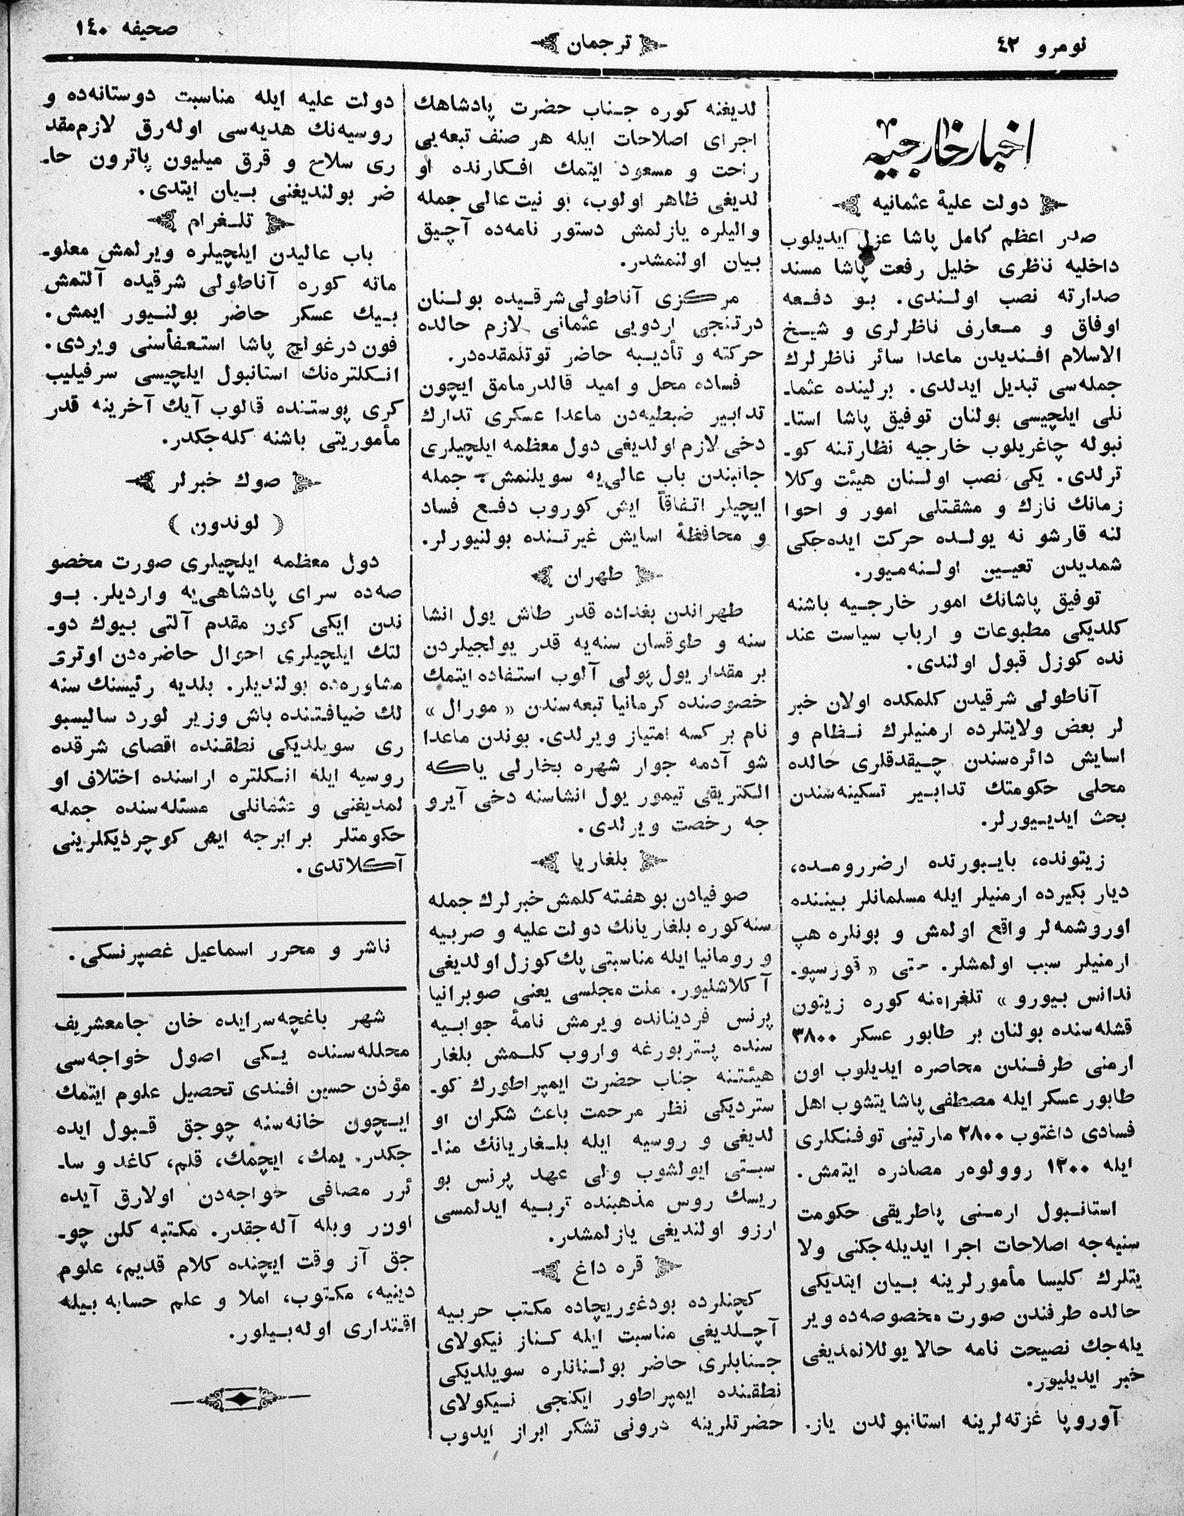 نومرو ٤٢
ترجمان
صحیفه ١٤٠
اخبار خارجیه
دولت علیهٔ عثمانیه
صدر اعظم كامل پاشا عزل ایدیلوب
داخلیه ناظری خلیل رفعت پاشا مسند
صدارته نصب اولندی. بو دفعه
اوقاق و معارف ناظرلری و شیخ
الاسلام افندیدن ماعدا سائر ناظرلرك
جمله‌سی تبدیل ایدلدی. برلینده عثما-
نلی ایلچیسی بولنان توفیق پاشا استا-
نبوله چاغریلوب خارجیه نظارتنه كو-
ترلدی. یكی نصب اولنان هیئت وكلا
زمانك نازك و مشقتلی امور و احوا
لنه قارشو نه یولده حركت ایده‌جكی
شمدیدن تعیین اولنه‌میور.
توفیق پاشانك امور خارجیه باشنه
كلدیكی مطبوعات و ارباب سیاست عند
نده كوزل قبول اولندی.
آناطولی شرقیدن كلمكده اولان خبر
لر بعض ولایتلرده ارمنیلرك نظام و
اسایش دائره‌سندن چیقدقلری حالده
محلی حكومتك تدابیر تسكینه‌سندن
بحث ایدیورلر.
زیتونده، بایبورتده ارضرومده،
دیار بكیرده ارمنیلر ایله مسلمانلر بیننده
اوروشمه‌لر واقع اولمش و بونلره هپ
ارمنیلر سبب اولمشلر. حتی « قورسپو-
ندانس بیورو » تلغرامنه كوره زیتون
قشله‌سنده بولنان بر طابور عسكر ٣٨٠٠
ارمنی طرفندن محاصره ایدیلوب اون
طابور عسكر ایله مصطفی پاشا یتشوب اهل
فسادی داغتوب ٢٨٠٠ مارتینی توفنكلری
ایله ١٢٠٠ روولوه‌ر مصادره ایتمش.
استانبول ارمنی پاطریقی حكومت
سنیه‌جه اصلاحات اجرا ایدیله‌جكنی ولا
یتلرك كلیسا مأمورلرینه بیان ایتدیكی
حالده طرفندن صورت مخصوصه‌ده ویر
یله‌جك نصیحت نامه حالا یوللانمدیغی
خبر ایدیلیور.
آوروپا غزته‌لرینه استانبولدن یاز.
لدیغنه كوره جناب حضرت پادشاهك
اجرای اصلاحات ایله هر صنف تبعه‌یی
راحت و مسعود ایتمك افكارنده او
لدیغی ظاهر اولوب، بو نیت عالی جمله
والیلره یازلمش دستور نامه‌ده آچیق
بیان اولنمشدر.
مركزی آناطولی شرقیده بولنان
درتنجی اردویی عثمانی لازم حالده
حركته و تأدیبه حاضر توتلمقده‌در.
فساده محل و امید قالدرمامق ایچون
تدابیر ضبطیه‌دن ماعدا عسكری تدارك
دخی لازم اولدیغی دول معظمه ایلچیلری
جانبندن باب عالی‌یه سویلنمش- جمله
ایچیلر اتفاقاً ایش كوروب دفع فساد
و محافظهٔ اسایش غیرتنده بولنیورلر.
طهران
طهراندن بغداده قدر طاش یول انشا
سنه و طوقسان سنه‌یه قدر یولجیلردن
بر مقدار یول پولی آلوب استفاده ایتمك
خصوصنده كرمانیا تبعه‌سندن « مورال »
نام بر كسه امتیاز ویرلدی. بوندن ماعدا
شو آدمه جوار شهره بخارلی یاكه
الكتریقی تیمور یول انشاسنه دخی آیرو
جه رخصت ویرلدی.
بلغاریا
صوفیادن بو هفته كلمش خبرلرك جمله
سنه كوره بلغاریانك دولت علیه و صربیه
و رومانیا ایله مناسبتی پك كوزل اولدیغی
آكلاشلیور. ملت مجلسی یعنی صوبرانیا
پرنس فردیناندە ویرمش نامهٔ جوابیه
سنده پتربورغه واروب كلمش بلغار
هیئتنه جناب حضرت ایمپراطورك كو-
ستردیكی نظر مرحمت باعث شكران او
لدیغی و روسیه ایله بلغاریانك منا-
سبتی ایولشوب ولی عهد پرنس بو
ریسك روس مذهبنده تربیه ایدلمسی
ارزو اولندیغی یازلمشدر.
قره داغ
كچنلرده بودغوریچاده مكتب حربیه
آچلدیغی مناسبت ایله كناز نیكولای
جنابلری حاضر بولنانلره سویلدیكی
نطقنده ایمپراطور ایكنجی نیكولای
حضرتلرینه درونی تشكر ابراز ایدوب
دولت علیه ایله مناسبت دوستانه‌ده و
روسیه‌نك هدیه‌سی اوله‌رق لازم مقد
ری سلاح و قرق میلیون پاترون حا-
ضر بولندیغنی بیان ایتدی.
تلغرام
باب عالیدن ایلچیلره ویرلمش معلو-
ماته كوره آناطولی شرقیده آلتمش
بیك عسكر حاضر بولنیور ایمش.
فون درغولچ پاشا استعفأسنی ویردی.
انكلتره‌نك استانبول ایلچیسی سرفیلیپ
كری پوستنده قالوب آیك آخرینه قدر
مأموریتی باشنه كله‌جكدر.
صوك خبرلر
( لوندون )
دول معظمه ایلچیلری صورت مخصو
صه‌ده سرای پادشاهی‌یه واردیلر. بو
ندن ایكی كون مقدم آلتی بیوك دو-
لتك ایلچیلری احوال حاضره‌دن اوتری
مشاوره‌ده بولندیلر. بلدیه رئیسنك سنه
لك ضیافتنده باش وزیر لورد سالیسبو
ری سویلدیكی نطقنده اقصای شرقده
روسیه ایله انكلتره اراسنده اختلاف او
لمدیغنی و عثمانلی مسئله‌سنده جمله
حكومتلر برابرجه ایش كوچردیكلرینی
آكلاتدی.
ناشر و محرر اسماعیل غصپرنسكی.
شهر باغچه‌سرایده خان جامعشریف
محلله‌سنده یكی اصول خواجه‌سی
مؤذن حسین افندی تحصیل علوم ایتمك
ایچون خانه‌سنه چوجق قبول ایده
جكدر. یمك، ایچمك، قلم، كاغد و سا-
ئرر مصافی خواجه‌دن اولارق آیده
اونر وبله آله‌جقدر. مكتبه كلن چو-
جق آز وقت ایچنده كلام قدیم، علوم
دینیه، مكتوب، املا و علم حسابه بیله
اقتداری اوله‌بیلور.